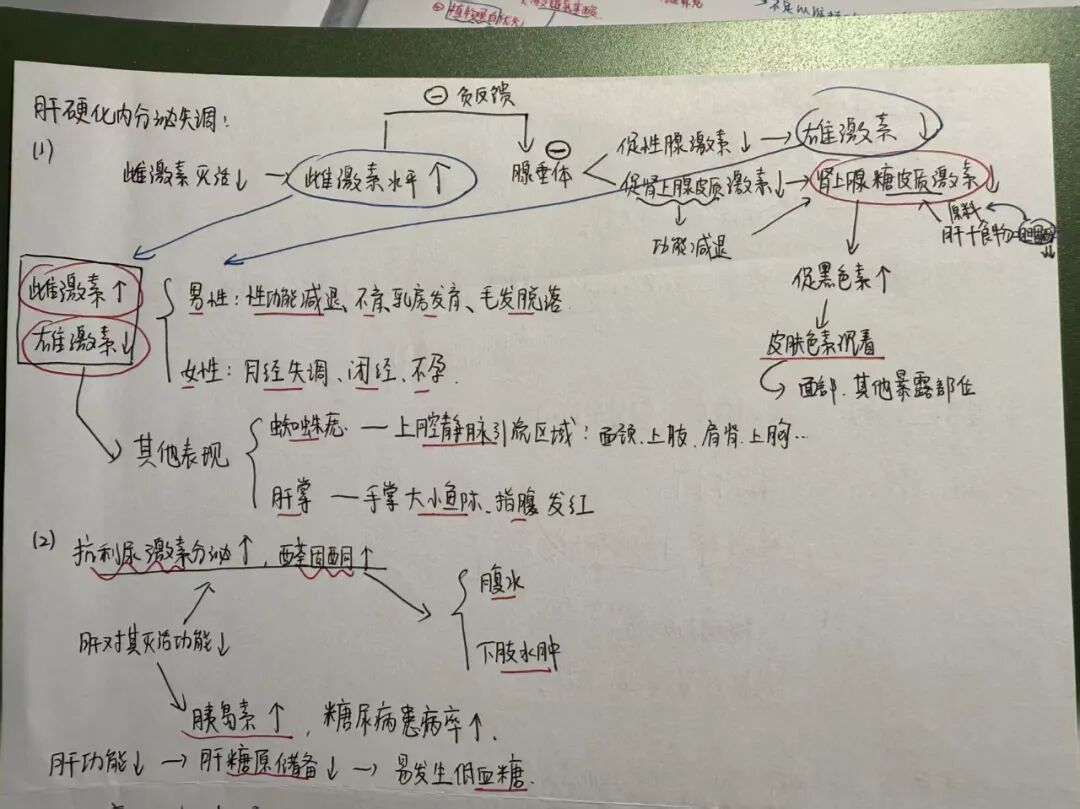 植物蛋白优先
不足以
肝硬化内分泌失调:
(1)
⊖ 负反馈
雌激素灭活↓ → 雌激素水平↑
腺垂体 ⊖
促性腺激素↓ → 雄激素↓
促肾上腺皮质激素↓ → 肾上腺糖皮质激素↓
功能减退
原料
肝+食物→胆固醇↓
促黑色素↑
皮肤色素沉着
面部、其他暴露部位
雌激素↑
雄激素↓
男性:性功能减退、不育、乳房发育、毛发脱落
女性:月经失调、闭经、不孕.
其他表现
蜘蛛痣 — 上腔静脉引流区域:面颈、上肢、肩背、上胸…
肝掌 — 手掌大小鱼际、指腹发红
(2)
抗利尿激素分泌↑,醛固酮↑
腹水
下肢水肿
肝对其灭活功能↓
胰岛素↑,糖尿病患病率↑.
肝功能↓ → 肝糖原储备↓ → 易发生低血糖.